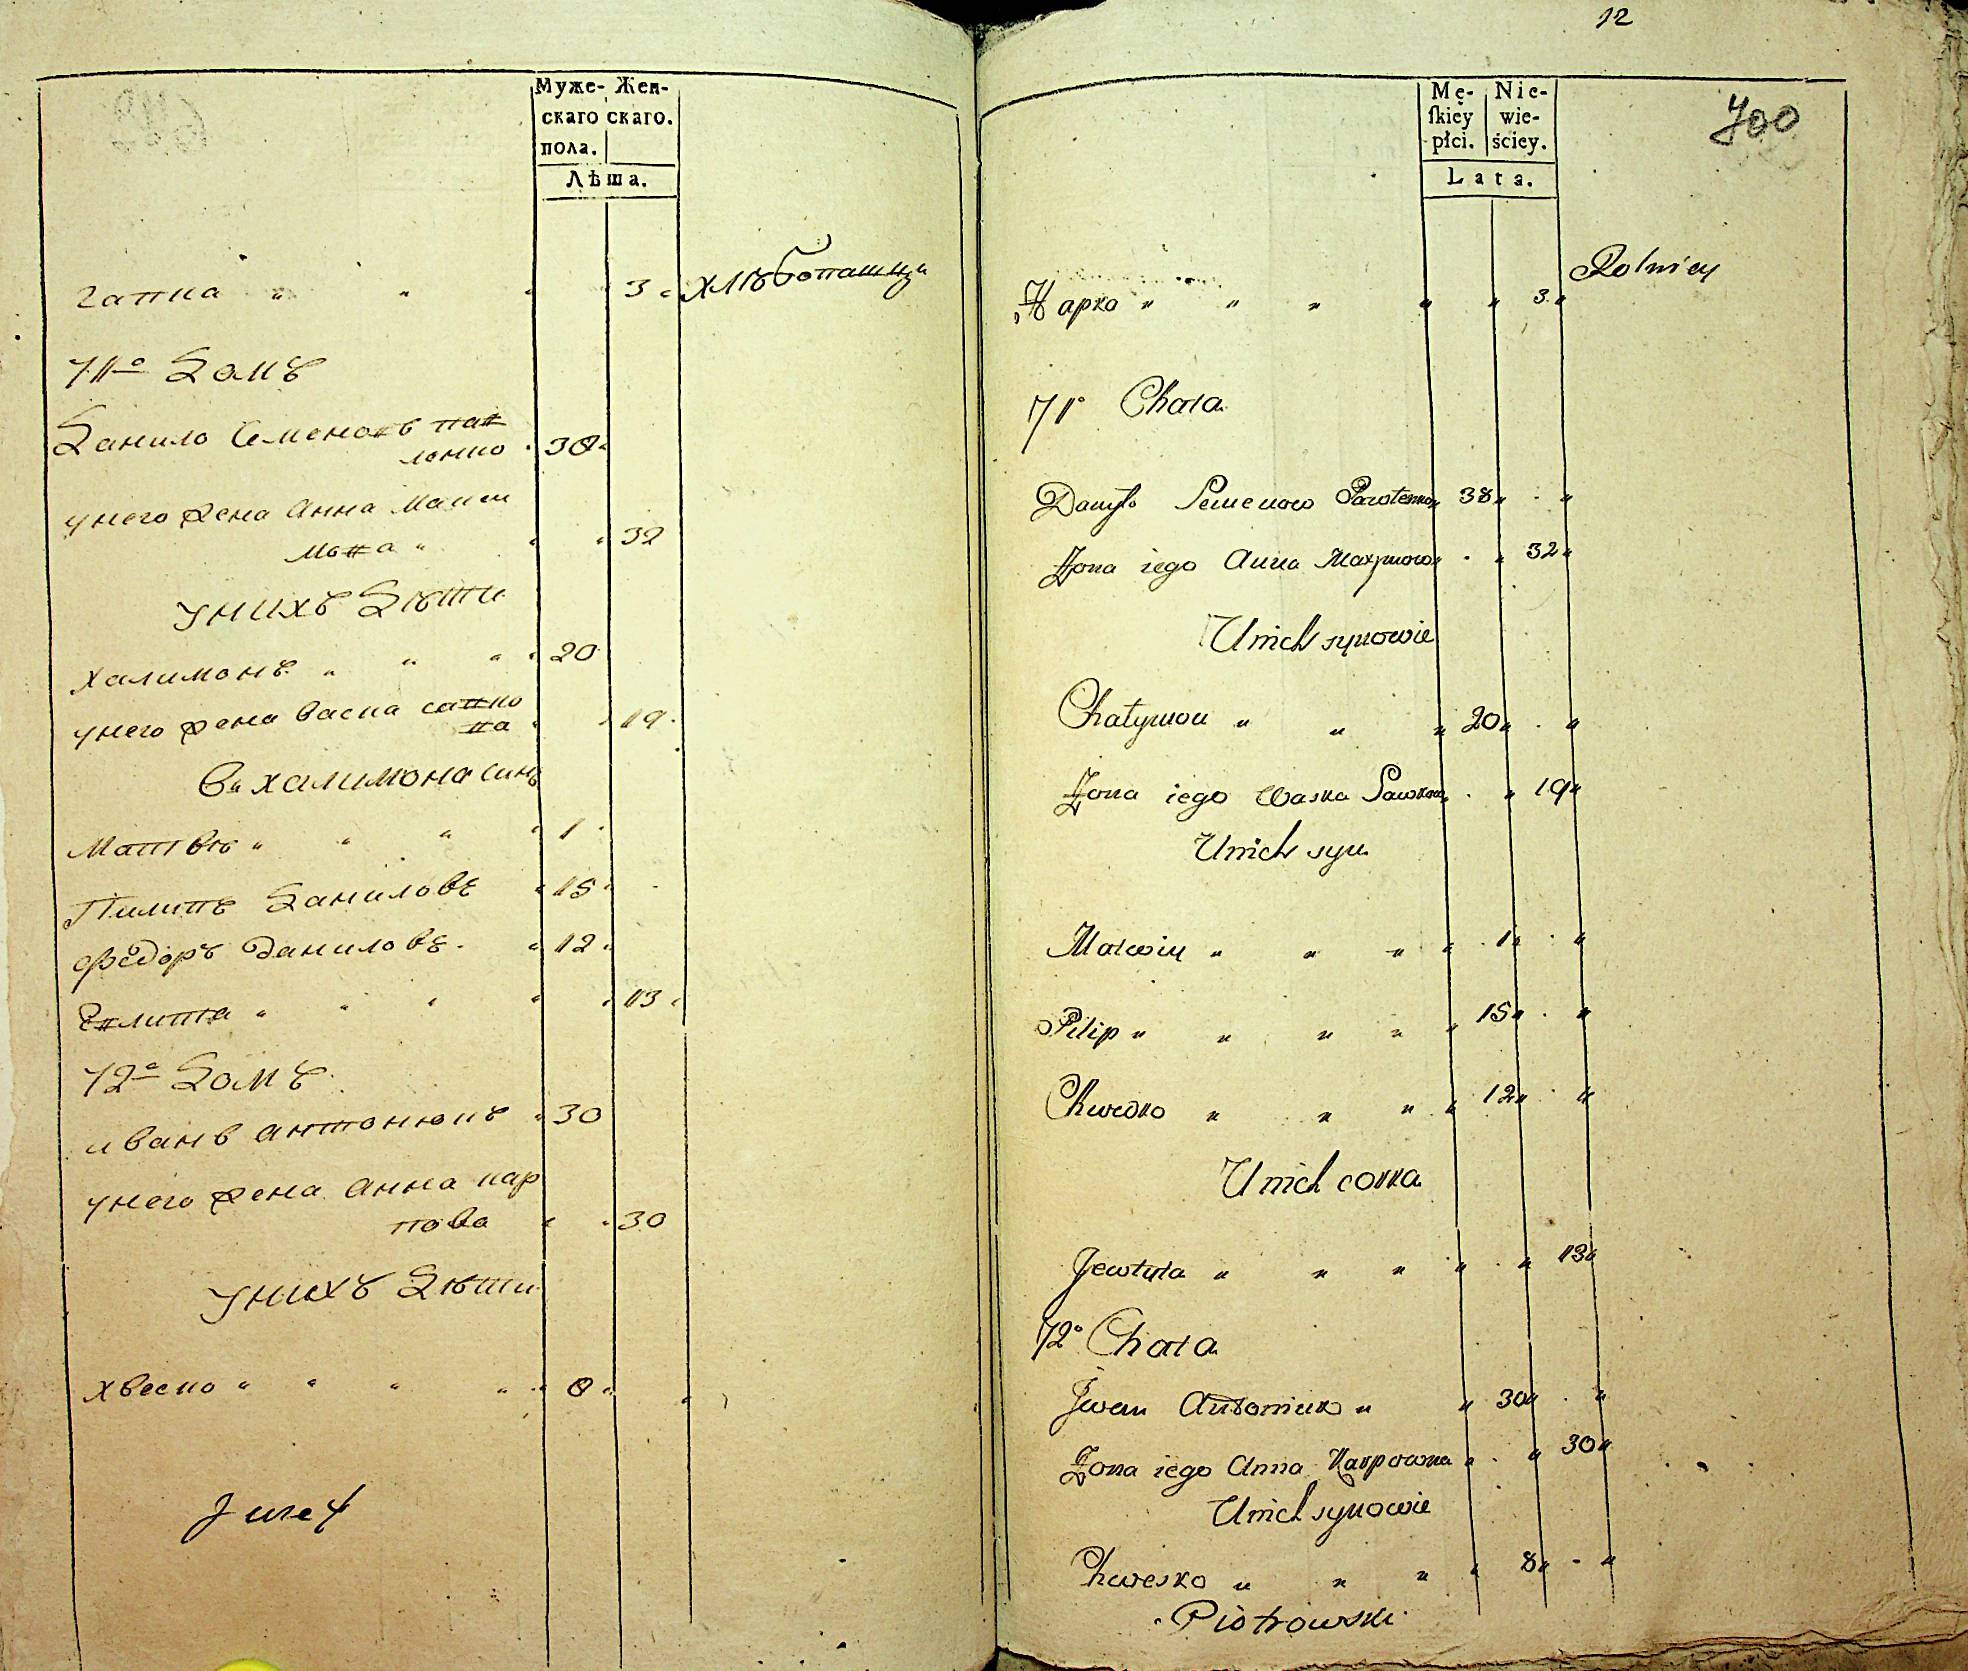 Муже- Жен-
скаго скаго.
пола.
Лѣта.
гапка " " " 3 " хлѣбопашцы
71го Домъ
Данило Семеновъ пав
ленко 38
у него жена Анна Макси
мова " " " 32
у нихъ Дѣти
халимонъ " " " 20
у него жена Васка савко
ва " 19
в халимона синъ
Матвѣй " " " 1
Пилипъ Даниловъ 15
Федоръ Даниловъ 12
Евлипта " " " 13
72го Домъ
иванъ антонюкъ 30
у него жена Анна кар
пова " 30
у нихъ Дѣти
хвеско " " " " 8
12
700
Mę- Nie-
skiey wie-
płci. ściey.
Lata.
Rolnicy
Hapka " " " " " 3 "
71a Chata
Danyło Semenow Pawlenko " 38 " . "
Żona iego Anna Maxymowa " . " 32 "
U nich synowie
Chałymon " " " 20 " . "
Żona iego Waska Sawkowa " . " 19 "
U nich syn
Matwiy " " " " 1 " . "
Pilip " " " " " 15 " . "
Chwedko " " " " 12 " . "
U nich corka
Jewtuta " " " " . " 13 "
72a Chata
Jwan Antoniuk " " 30 " . "
Żona iego Anna Karpowna " . " 30 "
U nich synowie
Chwesko " " " " 8 " . "
Piotrowski